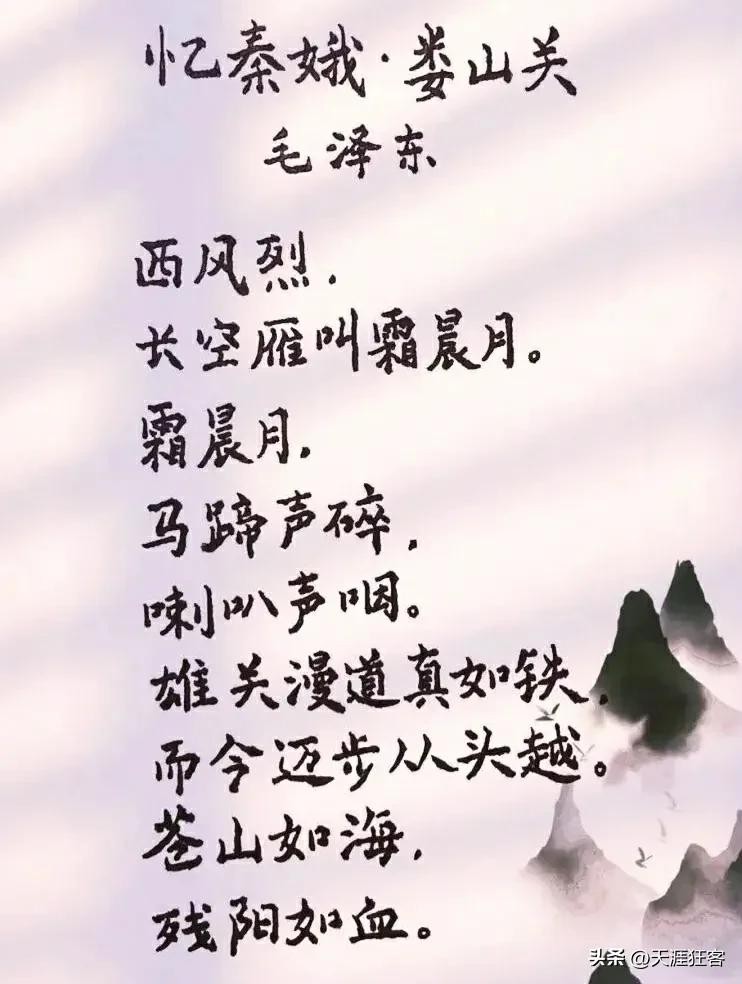 忆秦娥·娄山关
毛泽东
西风烈，
长空雁叫霜晨月。
霜晨月，
马蹄声碎，
喇叭声咽。
雄关漫道真如铁，
而今迈步从头越。
苍山如海，
残阳如血。
头条 @天涯狂客